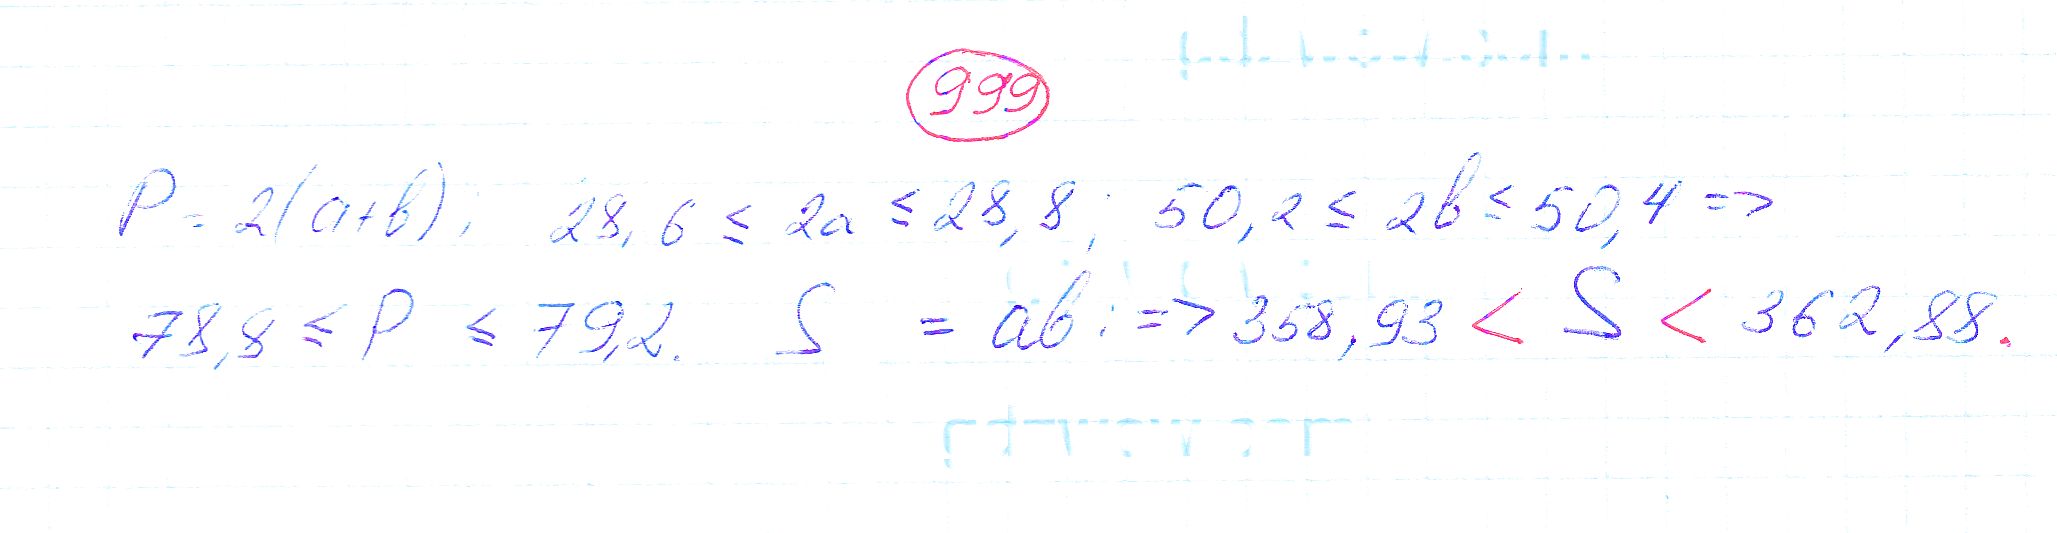 999
P = 2(a+b); 28,6 ≤ 2a ≤ 28,8; 50,2 ≤ 2b ≤ 50,4 =>
78,8 ≤ P ≤ 79,2. S = ab; => 358,93 < S < 362,88.